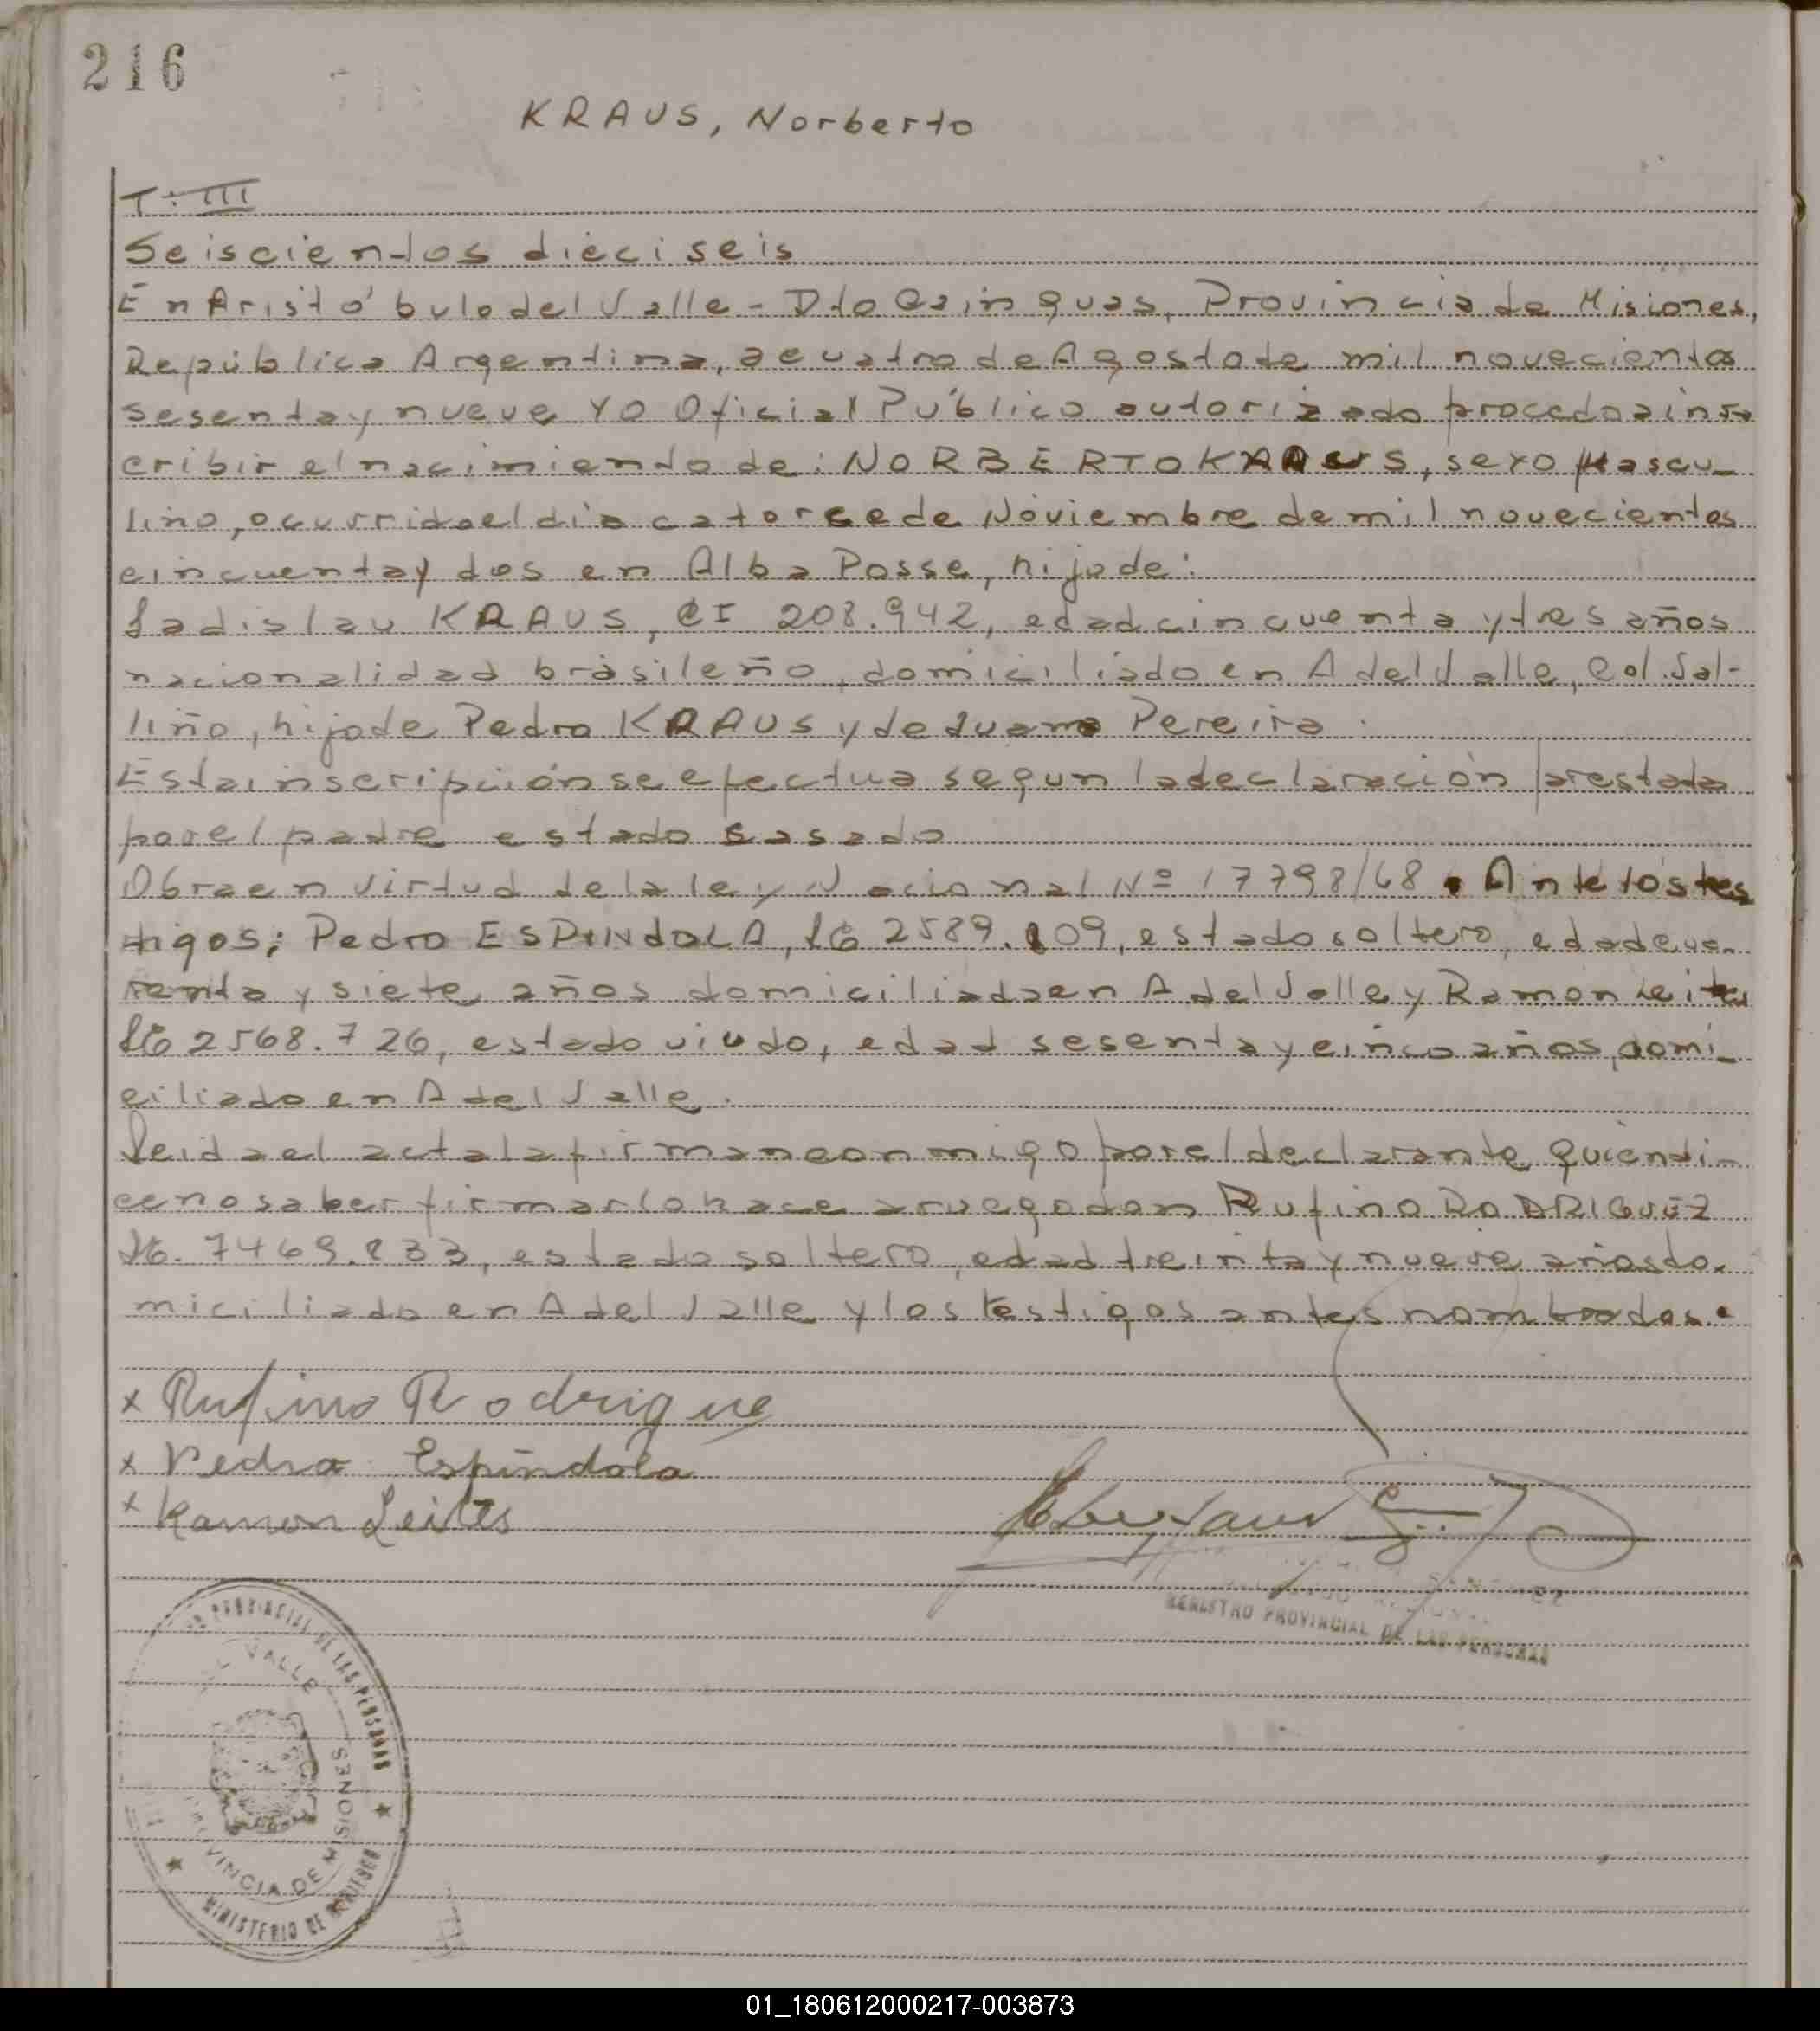 216
KRAUS, Norberto
T: III
Seiscientos dieciseis
En Aristóbulo del Valle - Dto Cainguas, Provincia de Misiones,
República Argentina, a cuatro de Agosto de mil novecientos
sesenta y nueve Yo Oficial Público autorizado procedo a ins
cribir el nacimiento de: NORBERTO KRAUS, sexo Mascu-
lino, ocurrido el día catorce de Noviembre de mil novecientos
cincuenta y dos en Alba Posse, hijo de:
Ladislau KRAUS, CI 208.942, edad cincuenta y tres años
nacionalidad brasileño, domiciliado en A del Valle, Col. Sal-
tiño, hijo de Pedro KRAUS y de Juana Pereira.
Esta inscripción se efectua segun la declaración prestada
por el padre estado casado
Obra en virtud de la ley Nacional Nº 17798/68. Ante los tes
tigos; Pedro ESPINDOLA, LE 2589.109, estado soltero, edad cua-
renta y siete años domiciliado en A del Valle y Ramon Leites
LE 2568.726, estado viudo, edad sesenta y cinco años, domi-
ciliado en A del Valle.
Leida el acta la firman conmigo por el declarante quien di-
ce no saber firmar lo hace a ruego don Rufino RODRIGUEZ
LE. 7469.233, estado soltero, edad treinta y nueve años do-
miciliado en A del Valle y los testigos antes nombrados.
x Rufino Rodrigue
x Pedro Espindola
x Ramon Leites
REGISTRO PROVINCIAL DE LAS PERSONAS
PROVINCIAL DE LAS PERSONAS
VALLE
PROVINCIA DE MISIONES
MINISTERIO DE GOBIERNO
01_180612000217-003873